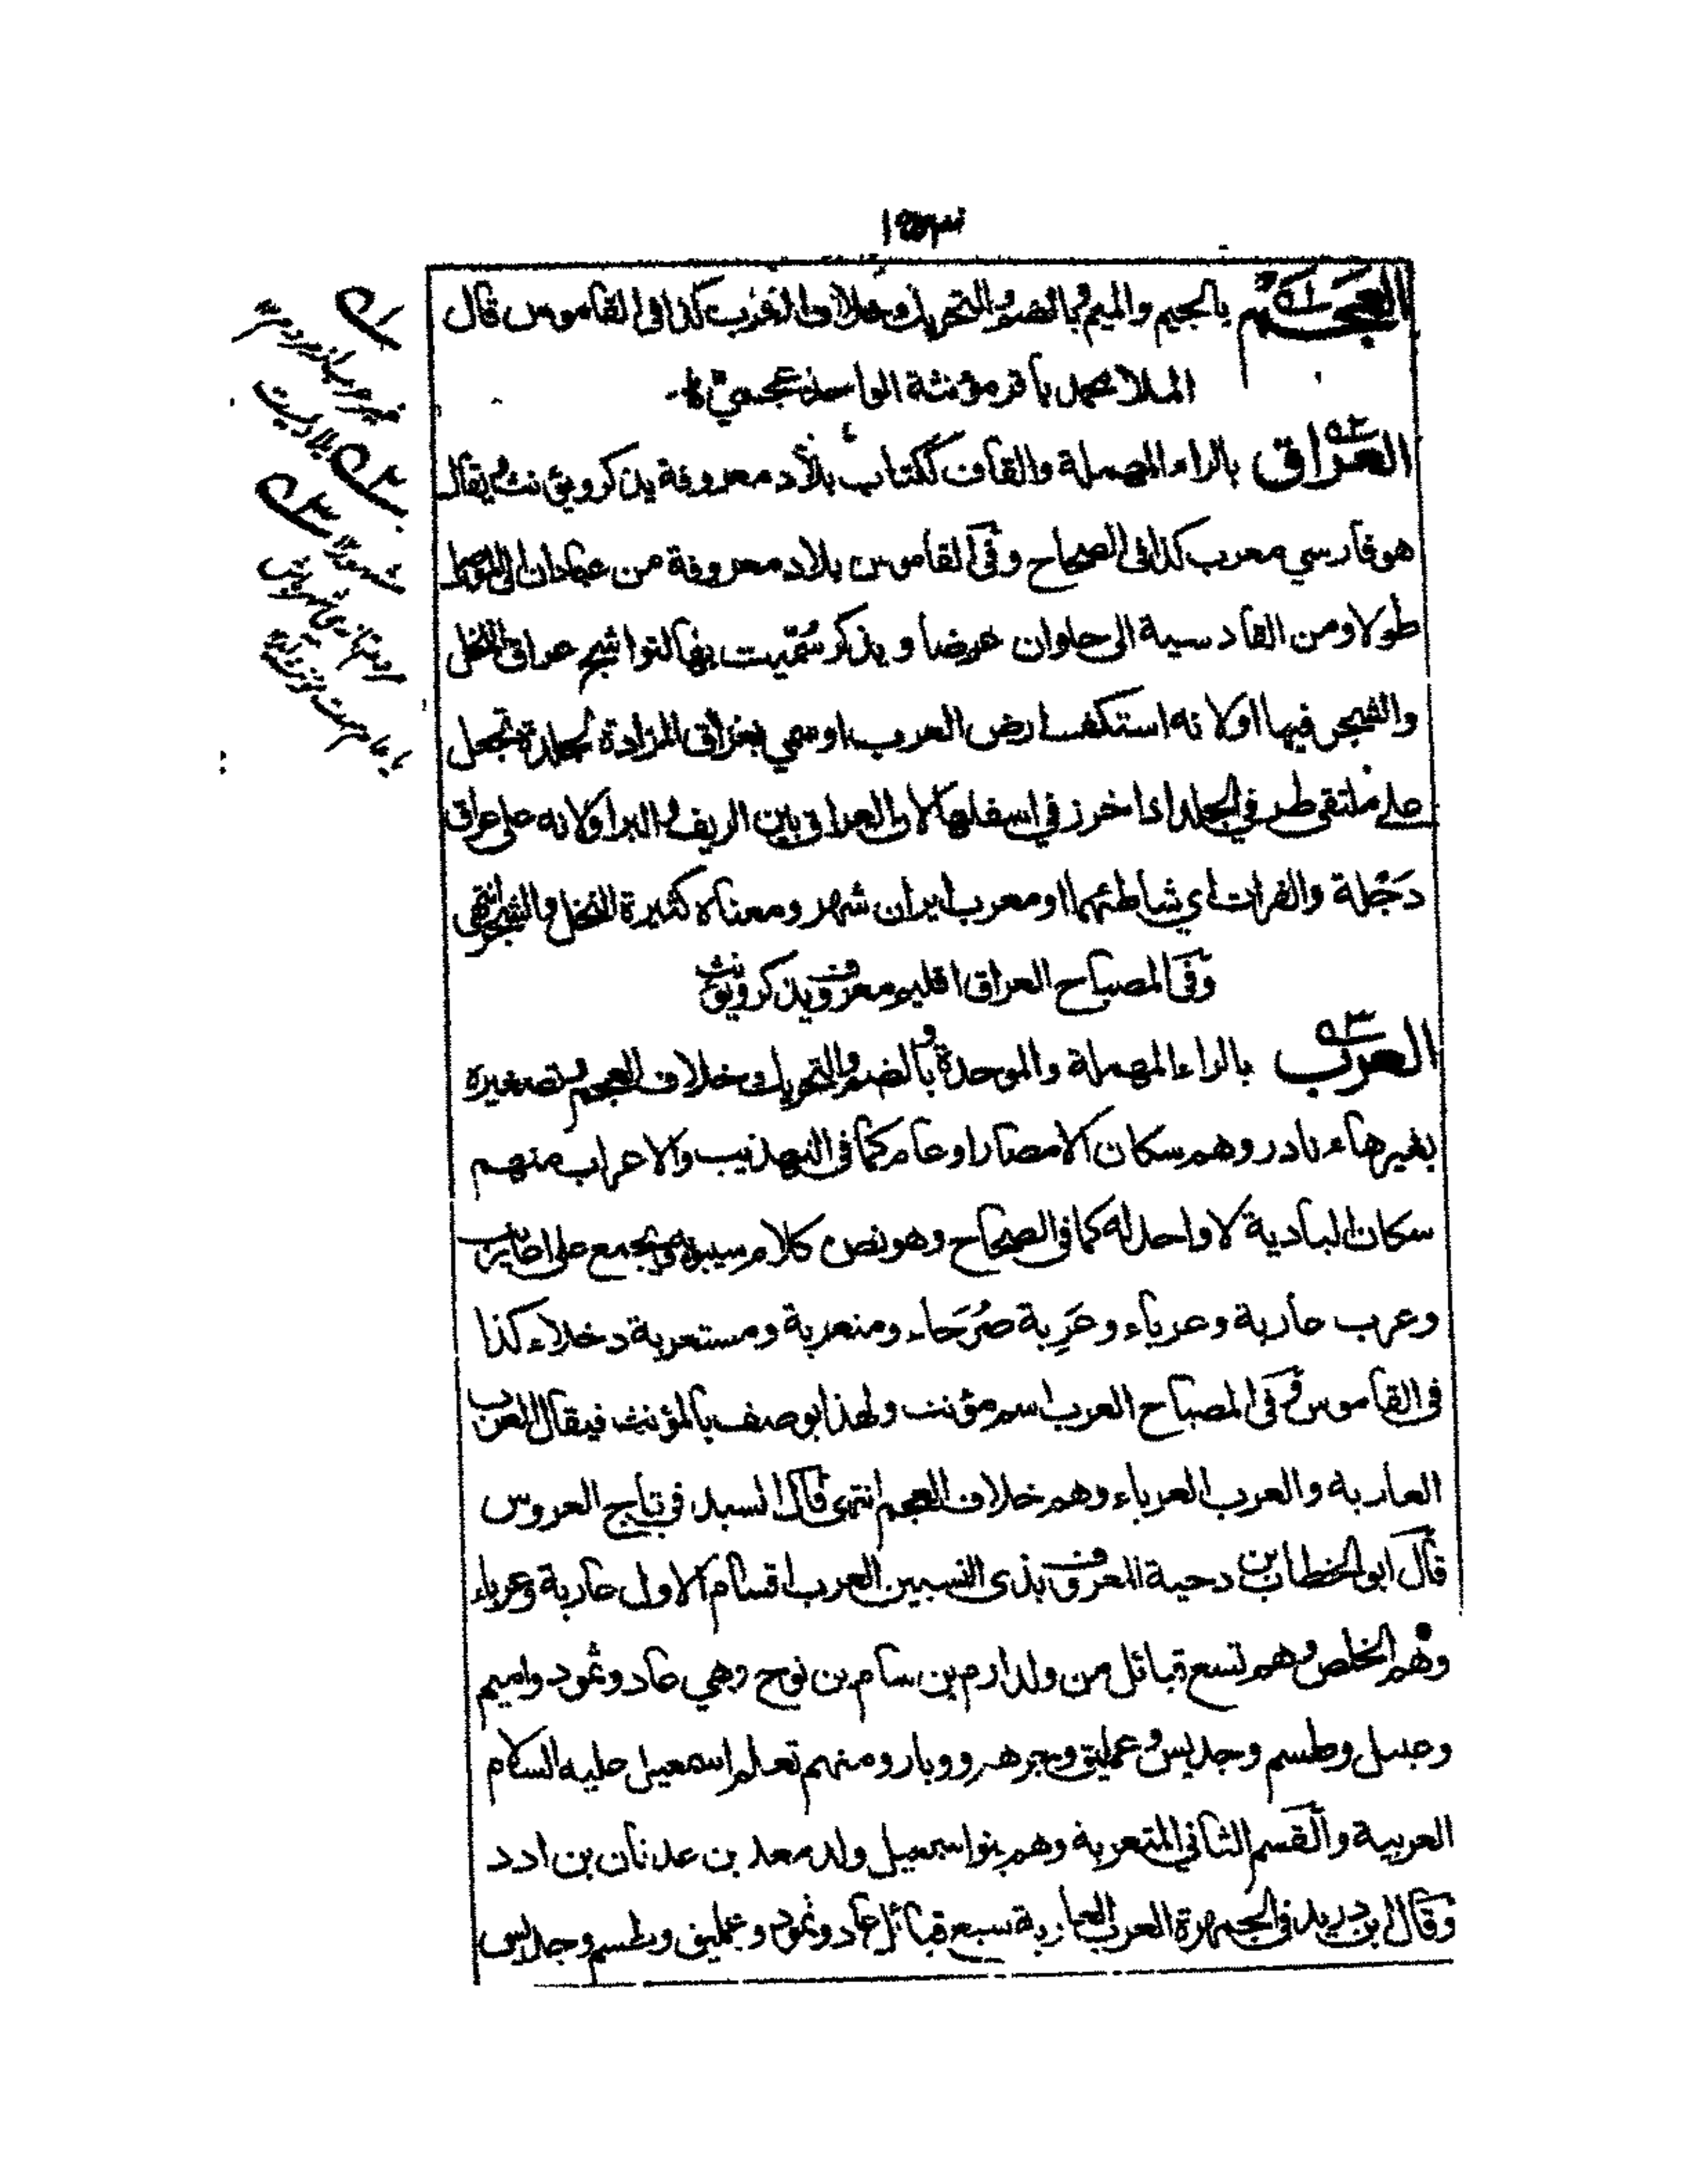 العجم بالجيم والميم وبالضم والتحريك خلاف العرب كذا في القاموس قال
الملا محمد باقر مؤنثة الواحد عجمي
العراق بالراء المهملة والقاف ككتاب بلاد معروفة يذكر ويؤنث يقال
هو فارسي معرب كذا في الصحاح وفي القاموس بلاد معروفة من عبادان الى الموصل
طولا ومن القادسية الى حلوان عرضا ويذكر سُمّيت بها لتواشج عراق النخل
والشجر فيها اولانه استكف ارض العرب اوسمي بعراق المزادة لجلدة تجعل
على ملتقى طرفي الجلد اذا خرز في اسفلها لان العراق بين الريف والبر اولانه على عراق
دَجْلة والفرات اي شاطئهما اومعرب ايران شهر ومعناه كثيرة النخل والشجر انتهى
وفي المصباح العراق اقليم معروف يذكر ويؤنث
العرب بالراء المهملة والموحدة وبالضم والتحريك خلاف العجم وتصغيره
بغير هاء نادر وهم سكان الامصار اوعام كما في التهذيب والاعراب منهم
سكان البادية لا واحد له كما في الصحاح وهو نص كلام سيبويه ويجمع على اعاريب
وعرب عاربة وعرباء وعَرِبة صُرَحاء ومتعربة ومستعربة دخلاء كذا
في القاموس وفي المصباح العرب اسم مؤنث ولهذا يوصف بالمؤنث فيقال العرب
العاربة والعرب العرباء وهم خلاف العجم انتهى قال السيد في تاج العروس
قال ابو الخطاب بن دحية المعروف بذي النسبين العرب اقسام الاول عاربة وعرباء
وهم الخلص وهم تسع قبائل من ولد ارم بن سام بن نوح وهي عاد وثمود واميم
وعبيل وطسم وجديس وعمليق وجرهم ووبار ومنهم تعلم اسمعيل عليه السلام
العربية والقسم الثاني المتعربة وهم بنو اسمعيل ولد معد بن عدنان بن ادد
وقال ابن دريد في الجمهرة العرب العاربة سبع قبائل عاد وثمود وعمليق وطسم وجديس